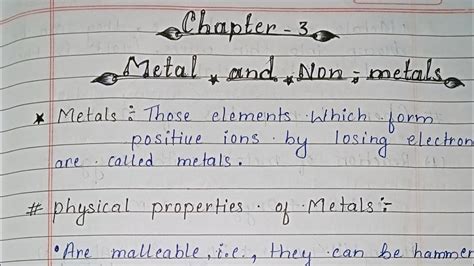 Chapter - 3
Metal and Non-metals
* Metals : Those elements which form
positive ions by losing electron
are called metals.
# physical properties of Metals :-
• Are malleable, i.e., they can be hammer